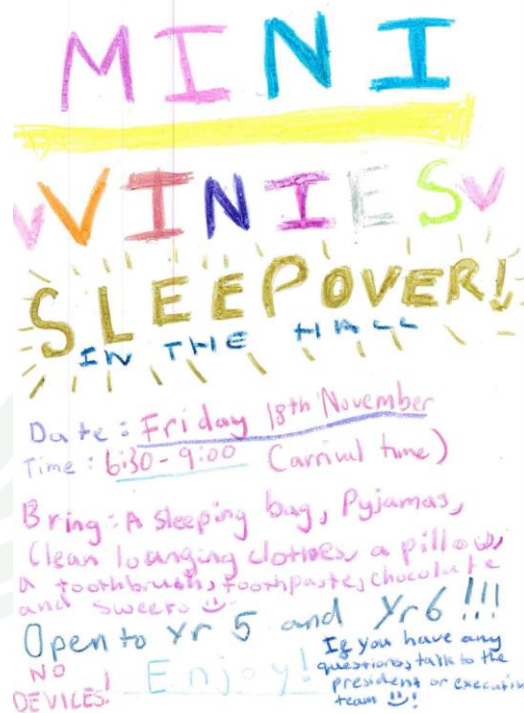 MINI
VINIES
SLEEPOVER!
IN THE HALL
Date: Friday 18th November
Time: 6:30-9:00 (arrival time)
Bring: A sleeping bag, Pyjamas,
Clean lounging clothes, a pillow,
a toothbrush, toothpaste, chocolate
and sweets
Open to Yr 5 and Yr6 !!!
NO
DEVICES!
Enjoy!
If you have any
questions, talk to the
president or executive
team !